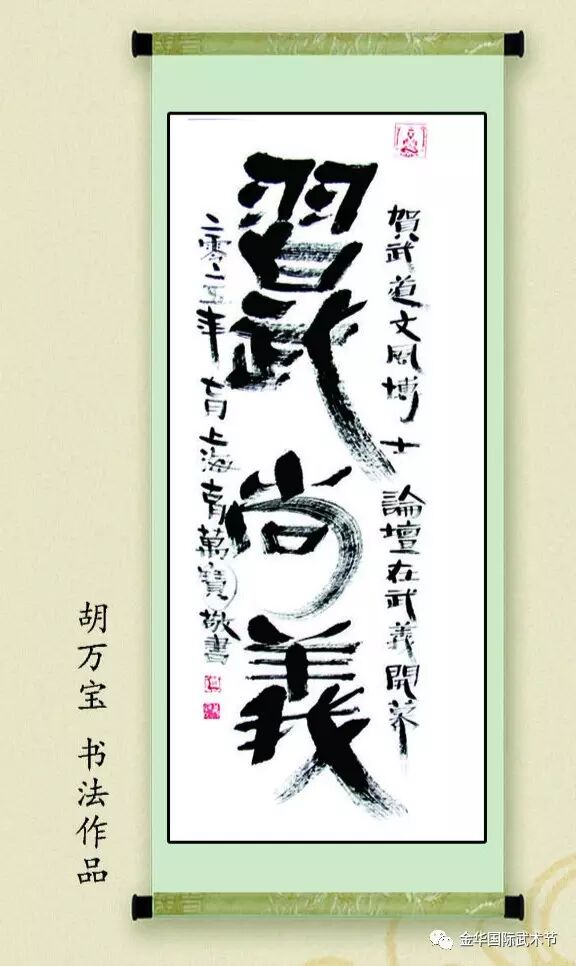 賀武道文風博士論壇在武義開幕
習武尚義
二零一五年七月上海胡萬寶敬書
胡万宝 书法作品
金华国际武术节